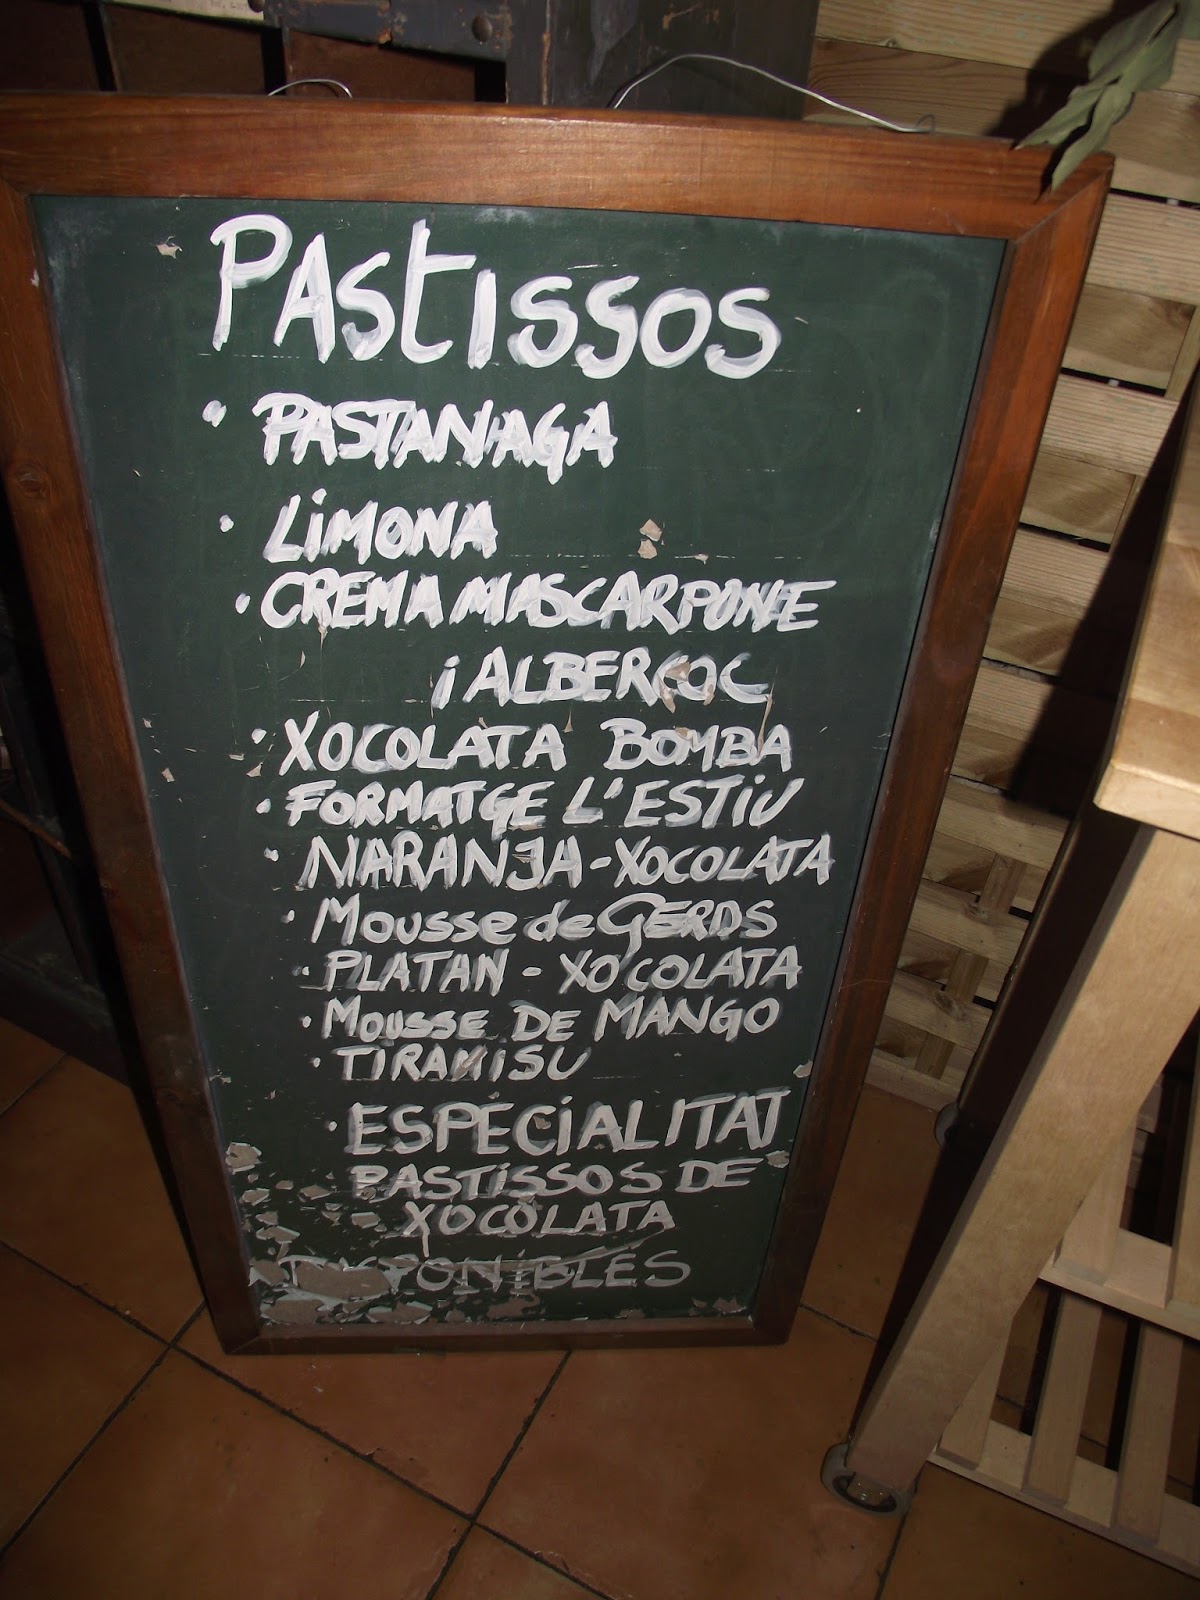 PASTISSOS
· PASTANAGA
· LIMONA
· CREMA MASCARPONE
i ALBERCOC
· XOCOLATA BOMBA
· FORMATGE L'ESTIU
· NARANJA-XOCOLATA
· Mousse de GERDS
· PLATAN - XOCOLATA
· Mousse DE MANGO
· TIRAMISU
· ESPECIALITAT
PASTISSOS DE
XOCOLATA
DISPONIBLES